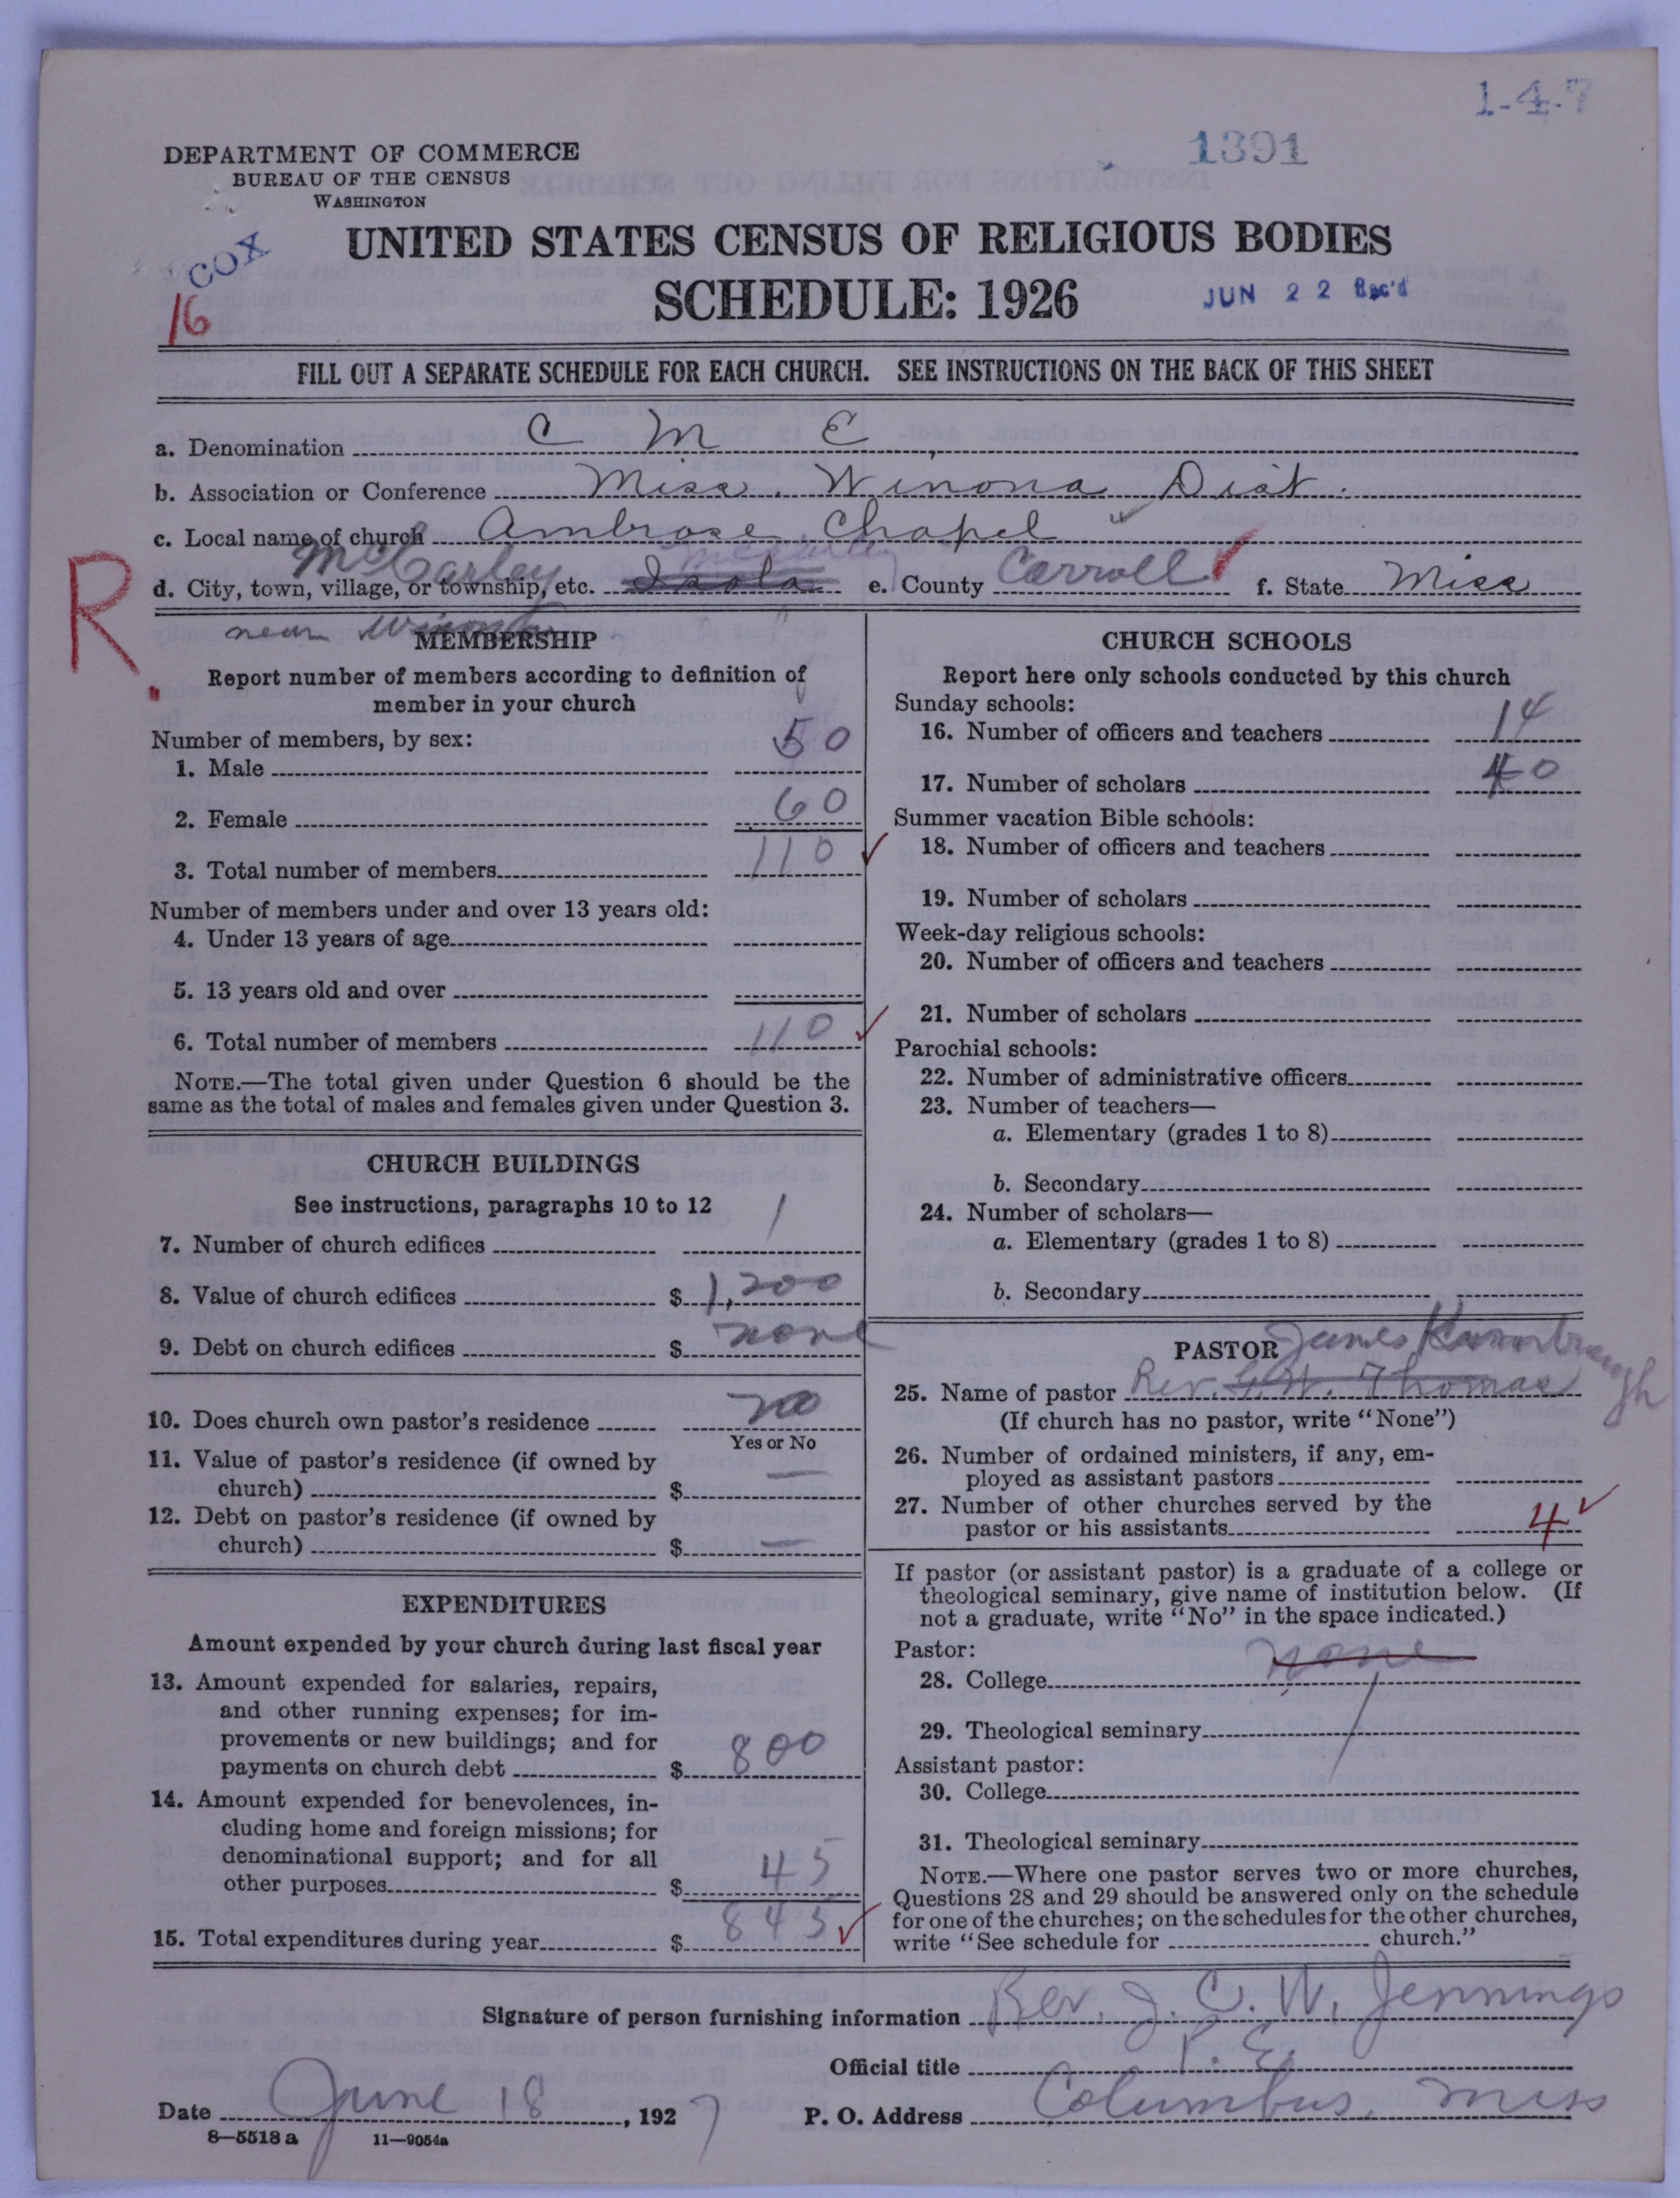 1-4-7
1391
DEPARTMENT OF COMMERCE
BUREAU OF THE CENSUS
WASHINGTON
COX
16
UNITED STATES CENSUS OF RELIGIOUS BODIES
SCHEDULE: 1926
JUN 22 Rec'd
FILL OUT A SEPARATE SCHEDULE FOR EACH CHURCH. SEE INSTRUCTIONS ON THE BACK OF THIS SHEET
a. Denomination C M E
b. Association or Conference Miss. Winona Dist.
c. Local name of church Ambrose Chapel
McCarley McCarley
d. City, town, village, or township, etc. Isola e. County Carroll f. State Miss
R.
near Winona
MEMBERSHIP
Report number of members according to definition of
member in your church
Number of members, by sex:
1. Male 50
2. Female 60
3. Total number of members 110
Number of members under and over 13 years old:
4. Under 13 years of age
5. 13 years old and over
6. Total number of members 110
NOTE.—The total given under Question 6 should be the
same as the total of males and females given under Question 3.
CHURCH BUILDINGS
See instructions, paragraphs 10 to 12
7. Number of church edifices 1
8. Value of church edifices $ 1,200
9. Debt on church edifices $ none
10. Does church own pastor's residence no
Yes or No
11. Value of pastor's residence (if owned by
church) $ —
12. Debt on pastor's residence (if owned by
church) $ —
EXPENDITURES
Amount expended by your church during last fiscal year
13. Amount expended for salaries, repairs,
and other running expenses; for im-
provements or new buildings; and for
payments on church debt $ 800
14. Amount expended for benevolences, in-
cluding home and foreign missions; for
denominational support; and for all
other purposes $ 45
15. Total expenditures during year $ 845
CHURCH SCHOOLS
Report here only schools conducted by this church
Sunday schools:
16. Number of officers and teachers 14
17. Number of scholars 40
Summer vacation Bible schools:
18. Number of officers and teachers
19. Number of scholars
Week-day religious schools:
20. Number of officers and teachers
21. Number of scholars
Parochial schools:
22. Number of administrative officers
23. Number of teachers—
a. Elementary (grades 1 to 8)
b. Secondary
24. Number of scholars—
a. Elementary (grades 1 to 8)
b. Secondary
PASTOR James Kimbrough
25. Name of pastor Rev. G. W. Thomas
(If church has no pastor, write "None")
26. Number of ordained ministers, if any, em-
ployed as assistant pastors
27. Number of other churches served by the
pastor or his assistants 4
If pastor (or assistant pastor) is a graduate of a college or
theological seminary, give name of institution below. (If
not a graduate, write "No" in the space indicated.)
Pastor:
28. College none
29. Theological seminary
Assistant pastor:
30. College
31. Theological seminary
NOTE.—Where one pastor serves two or more churches,
Questions 28 and 29 should be answered only on the schedule
for one of the churches; on the schedules for the other churches,
write "See schedule for church."
Signature of person furnishing information Rev. J. C. W. Jennings
Official title P. E.
Date June 18, 1927 P. O. Address Columbus, Miss
8—5518 a 11—9054a